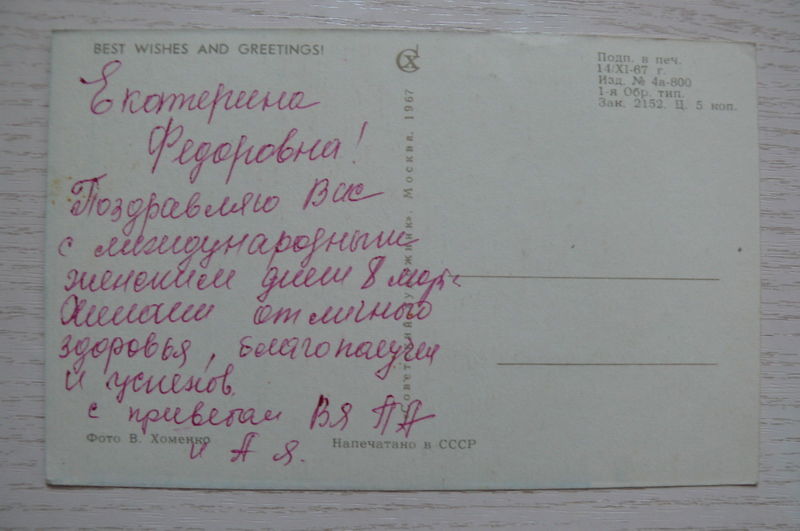 BEST WISHES AND GREETINGS!
Подп. в печ.
14/XI-67 г.
Изд. № 4а-800
1-я Обр. тип.
Зак. 2152. Ц. 5 коп.
Екатерина
Федоровна!
Поздравляю Вас
с международным
женским днем 8 март
Желаем отличного
здоровья, благополучия
и успехов.
с приветом ВЯ ПА
и А Я.
Москва. 1967
Фото В. Хоменко
Напечатано в СССР